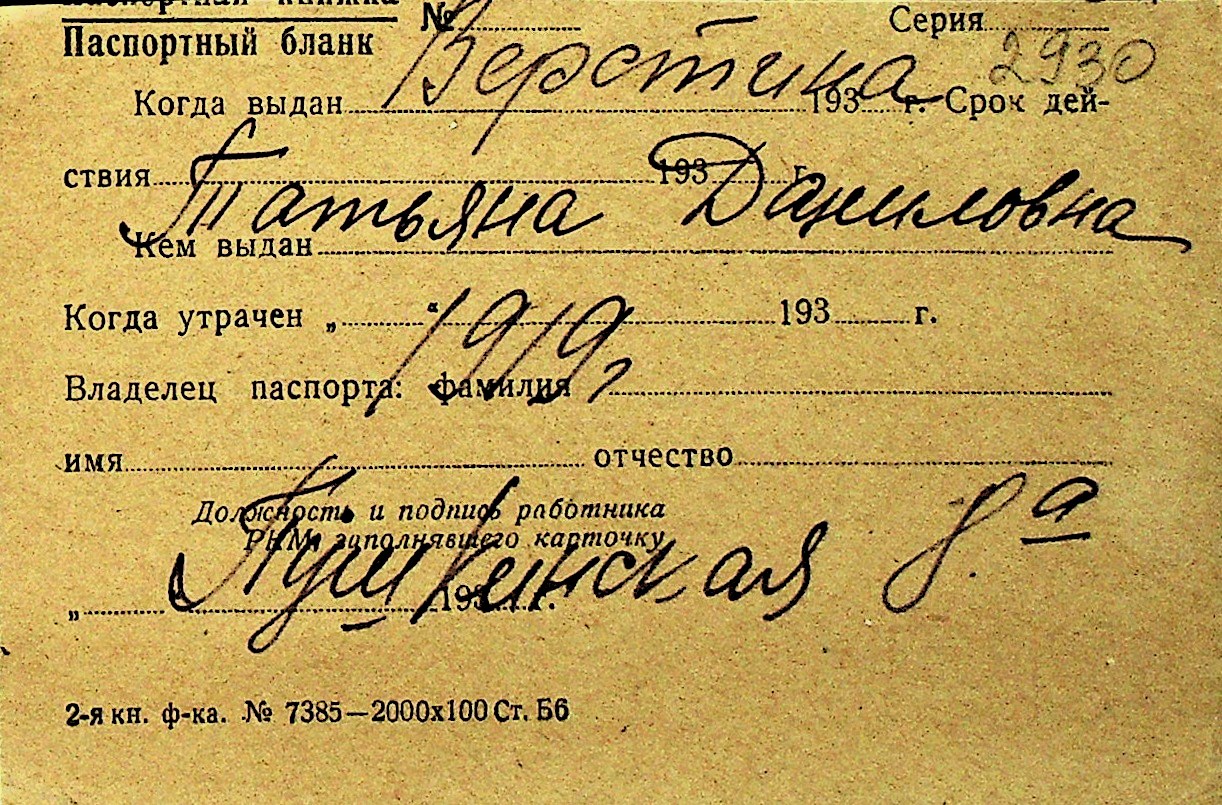 Паспортная книжка
Паспортный бланк № Серия
Верстина 2930
Когда выдан 193 г. Срок дей-
ствия 193 г.
Татьяна Даниловна
Кем выдан
Когда утрачен „ “ 193 г.
1919 г
Владелец паспорта: фамилия
имя отчество
Должность и подпись работника
РКМ, заполнявшего карточку
Пушкинская 8а
„ 193 г.
2-я кн. ф-ка. № 7385—2000х100 Ст. Б6